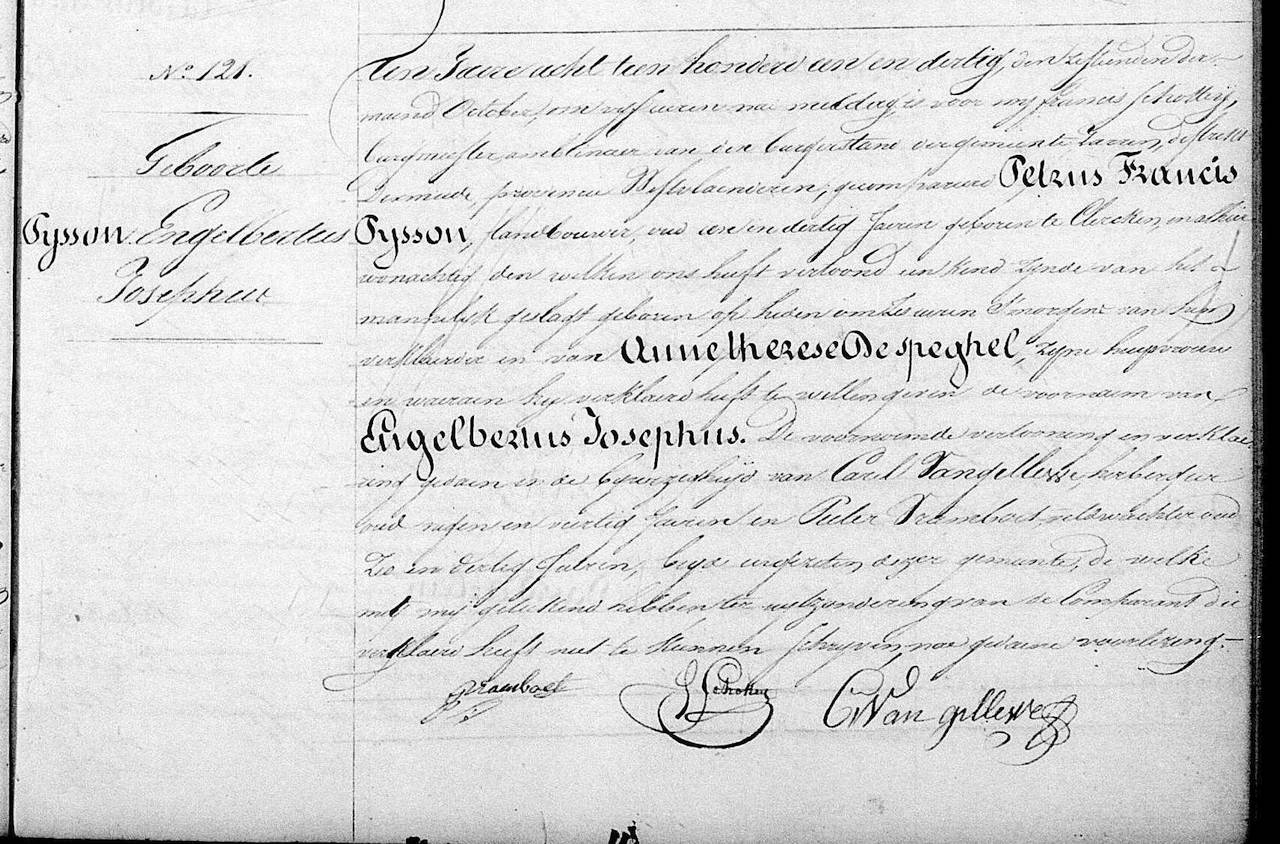 N° 121.
Geboorte
Pysson Engelbertus
Josephus
Ten Jaere acht tien honderd een en dertig, den zestienden der
maend October, om vyf uren na middag, is voor my Francis Schottey,
burgmeester ambtenaer van den burgerstand der gemeente Zarren, distrikt
Dixmude provincie Westvlaenderen, gecompareerd Petrus Francis
Pysson, landbouwer, oud een en dertig Jaeren geboren te Clercken, en alhier
woonachtig den welken ons heeft vertoond een kind zynde van het
mannelyk geslagt geboren op heden om zes uren s'morgens van hem
verklaerder en van Anne therese De speghel, zyne huysvrouw
en waeraen hy verklaerd heeft te willen geven de voornaem van
Engelbertus Josephus. De voornoemde vertooning en verklae-
ring gedaen in de bywezenheyd van Carel Vangellewe, herbergier
oud negen en veertig Jaeren en Pieter Trambaet veldwachter oud
en dertig Jaeren, beyde ingezeten dezer gemeente, de welke
met my geteekend hebben ter uytzondering van de Comparant die
verklaerd heeft niet te kunnen schryven, na gedaene voorlezing.
Trambaet
Schottey
C Van gellewe